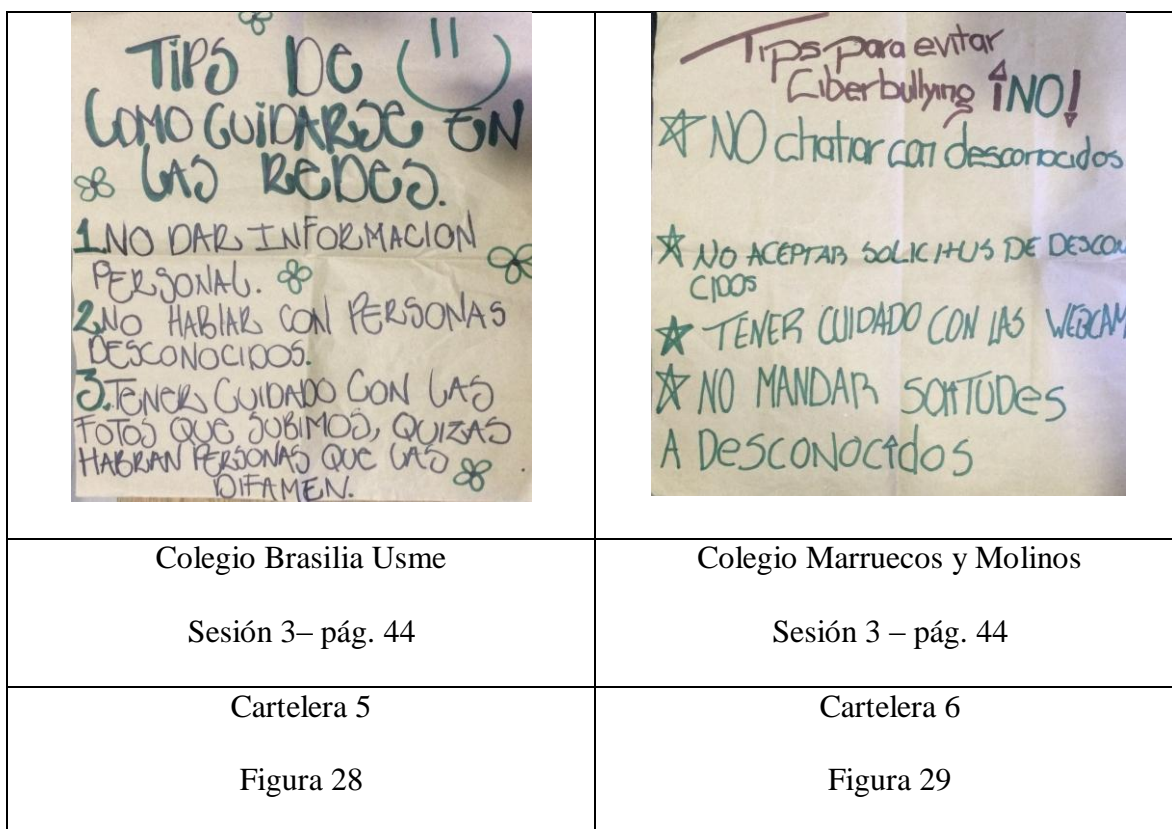 TIPS DE
COMO CUIDARSE EN
LAS REDES.
1. NO DAR INFORMACION
PERSONAL.
2. NO HABLAR CON PERSONAS
DESCONOCIDOS.
3. TENER CUIDADO CON LAS
FOTOS QUE SUBIMOS, QUIZAS
HABRAN PERSONAS QUE LAS
DIFAMEN.
Tips para evitar
Ciberbullying ¡NO!
NO chatiar con desconocidos
NO ACEPTAR SOLICITUS DE DESCON
CIDOS
TENER CUIDADO CON LAS WEBCAM
NO MANDAR
A DESCONOCIdOS
Colegio Brasilia Usme
Sesión 3– pág. 44
Colegio Marruecos y Molinos
Sesión 3 – pág. 44
Cartelera 5
Figura 28
Cartelera 6
Figura 29